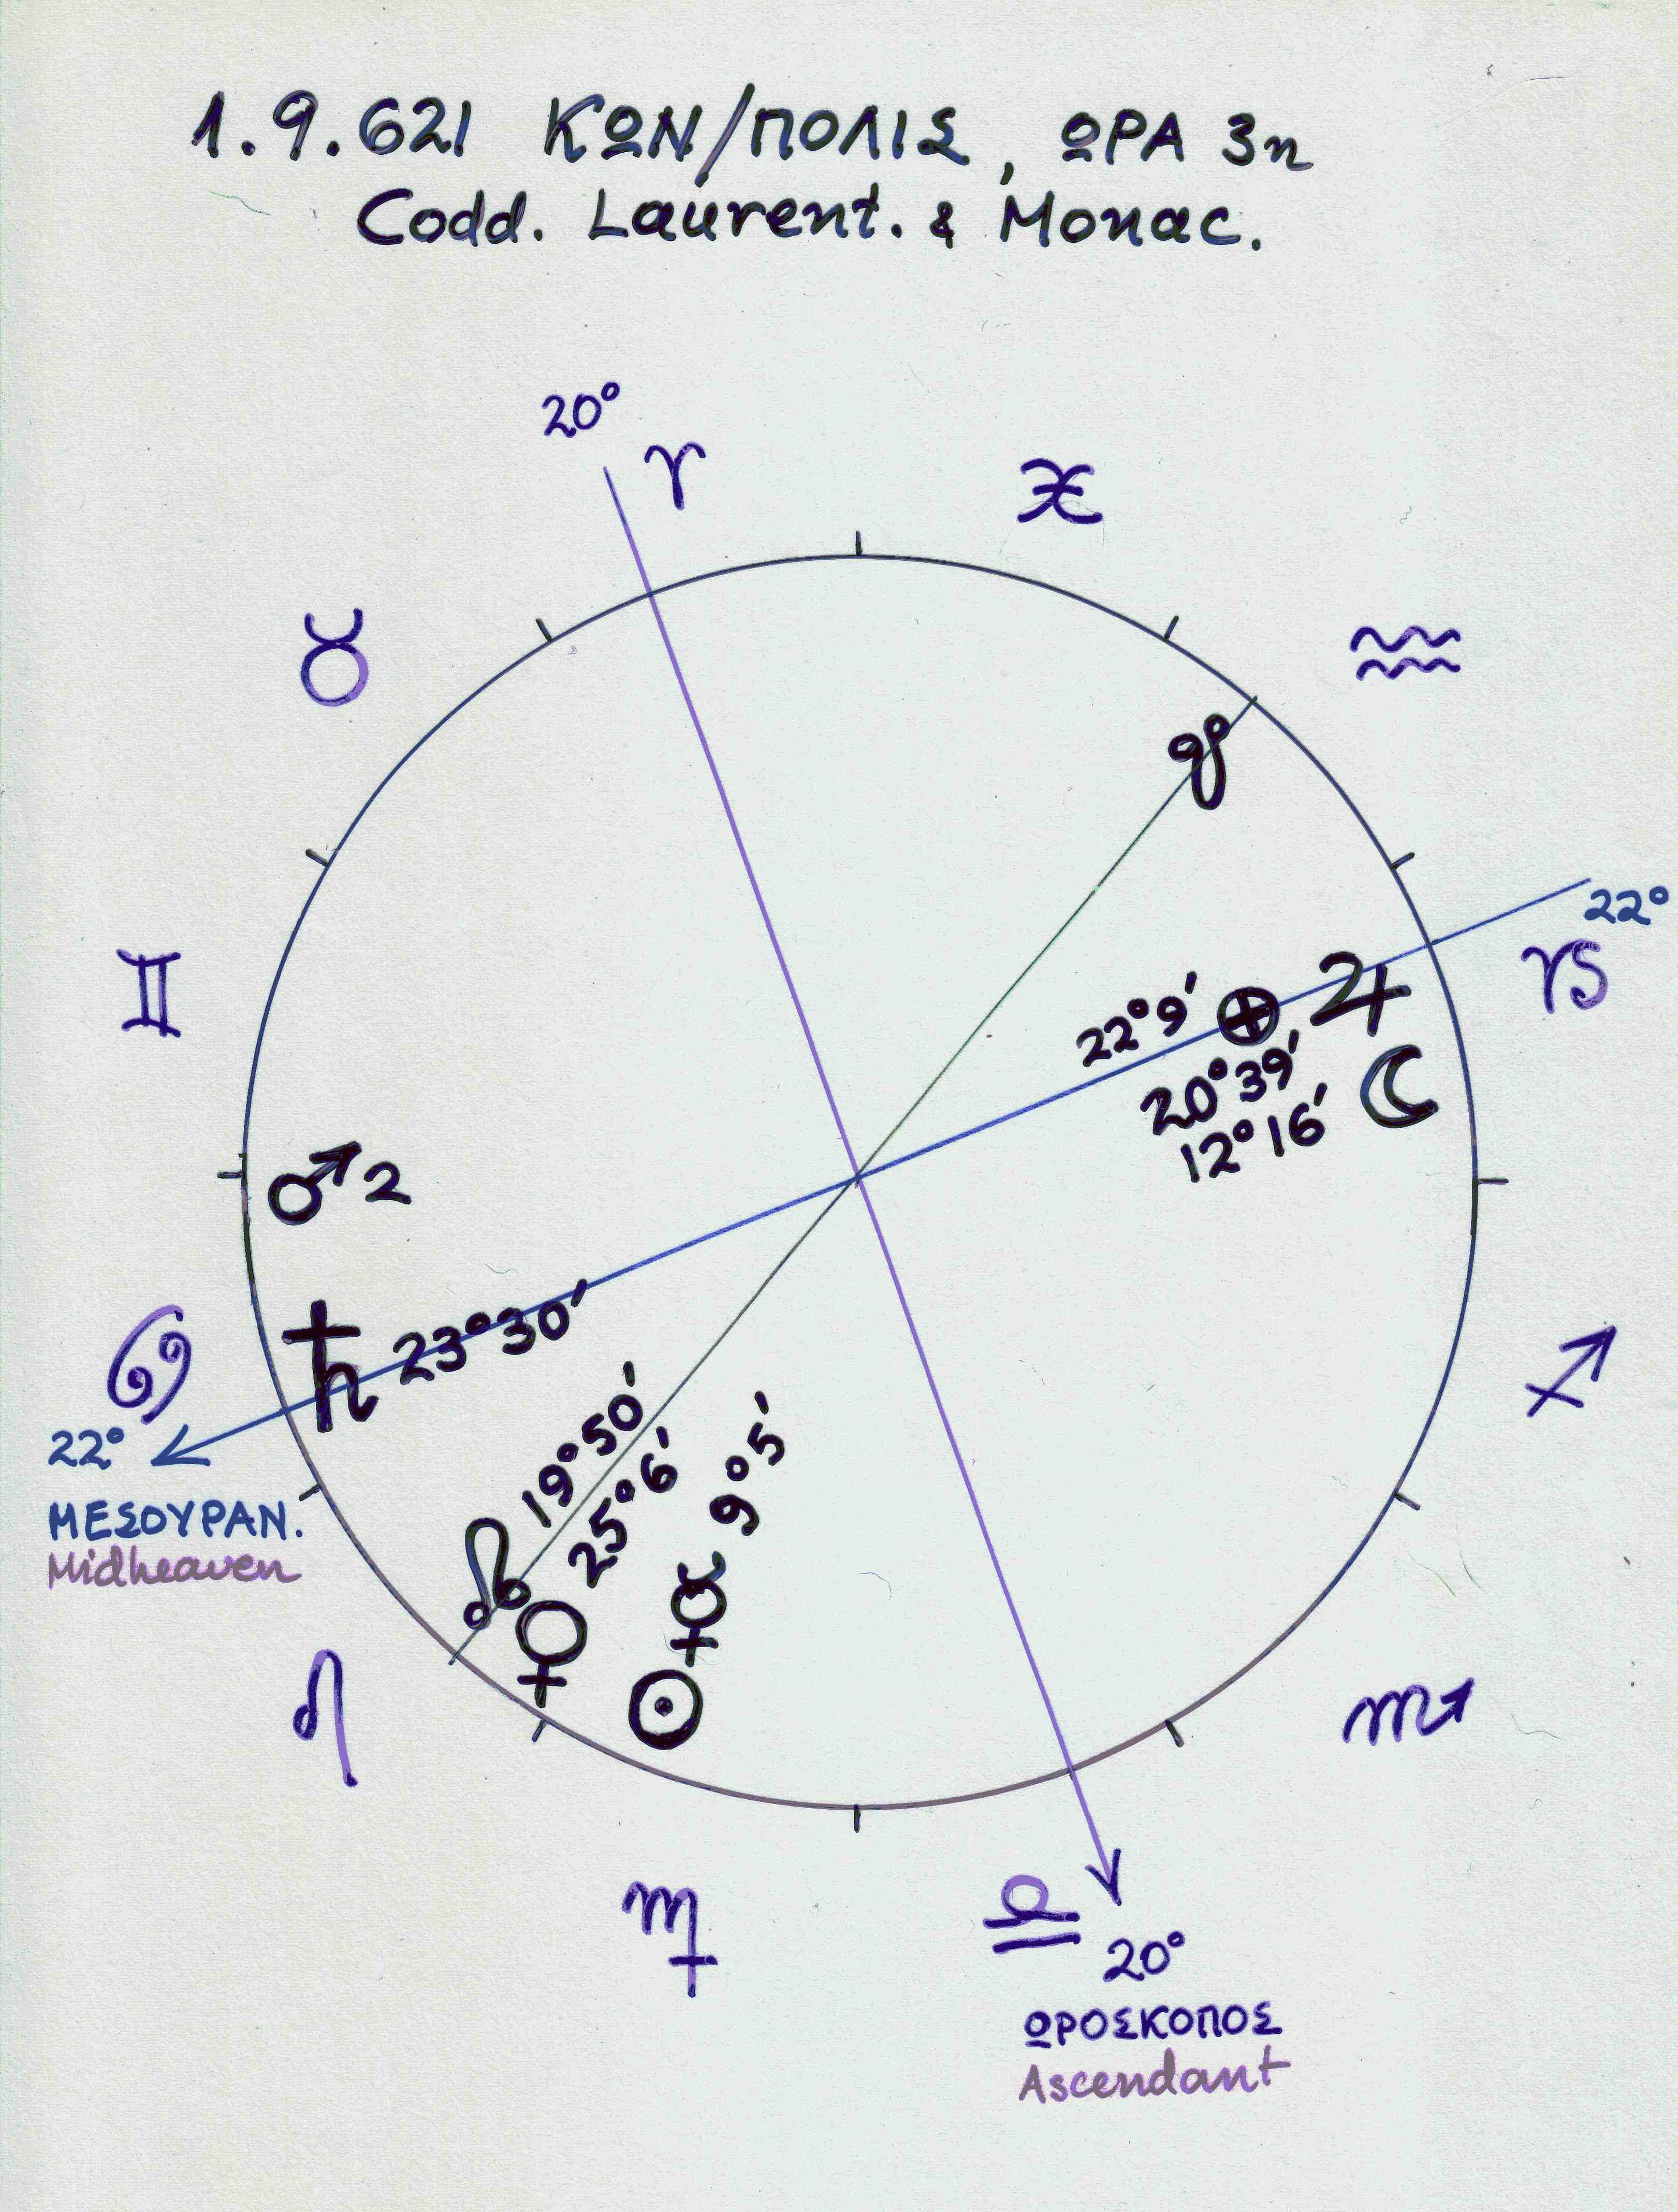 1.9.621 ΚΩΝ/ΠΟΛΙΣ, ΩΡΑ 3η
Codd. Laurent. & Monac.
20° ♈
♓
♉
♒
☋
22°
♊
♑
22°9' ⊗ ♃
20°39'
12°16' ☾
♂ 2
♄ 23°30'
♋
♐
22°
ΜΕΣΟΥΡΑΝ.
Midheaven
☊ 19°50'
♀ 25°6'
☉ ☿ 9°5'
♌
♏
♍
♎
20°
ΩΡΟΣΚΟΠΟΣ
Ascendant